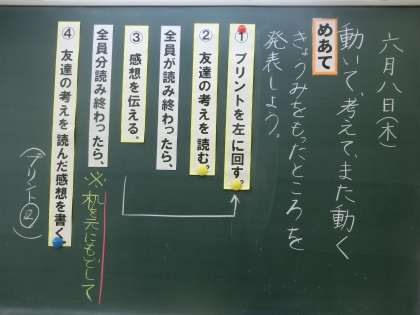 六月八日(木)
動いて、考えて、また動く
めあて
きょうみをもったところを
発表しよう。
① プリントを左に回す。
② 友達の考えを読む。
全員が読み終わったら、
③ 感想を伝える。
全員分読み終わったら、
※机を元にもどして
④ 友達の考えを読んだ感想を書く。
(プリント②)